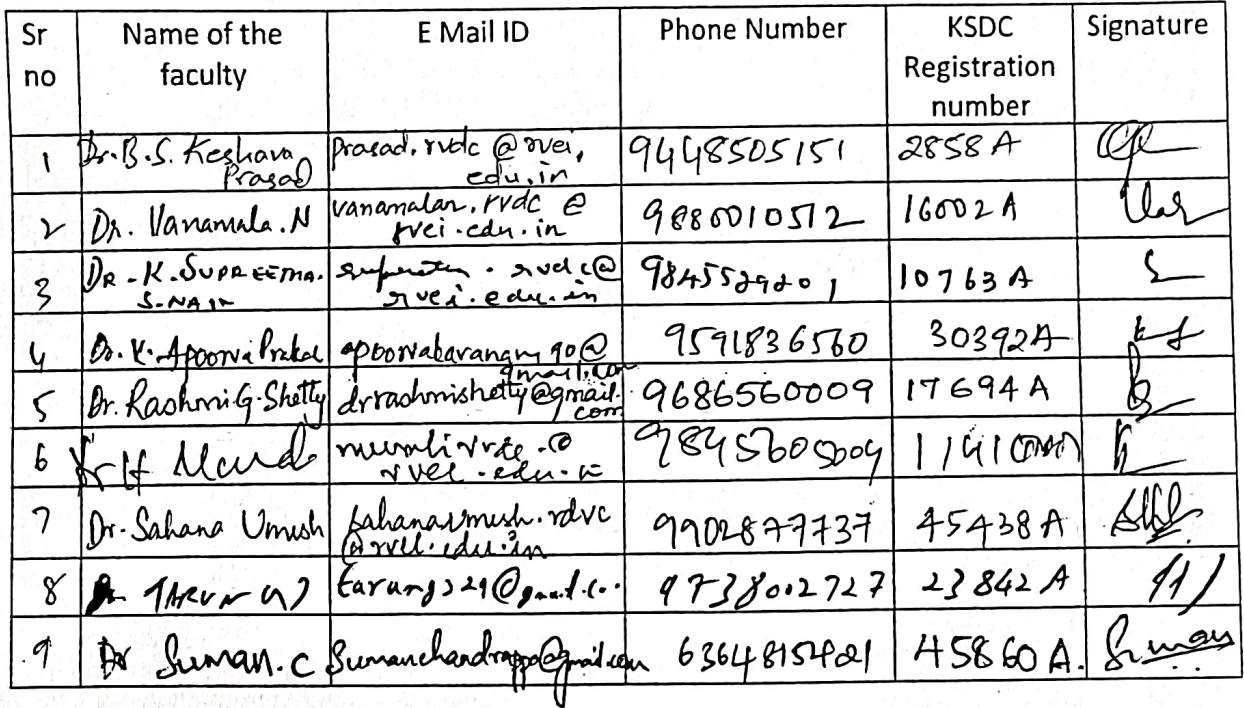 Sr no Name of the faculty E Mail ID Phone Number KSDC Registration number Signature
1 Dr. B.S. Keshava Prasad prasad.rvdc@rvei.edu.in 9448505151 2858 A
2 Dr. Vanamala.N vanamalan.rvdc@rvei.edu.in 9880010512 16002 A
3 DR. K. SUPREETHA. S. NAIR rvdc@rvei.edu.in 10763 A
4 Dr. K. Apoorva 9591836560 30392A
5 Dr. Rashmi G. Shetty drrashmishetty@gmail.com 9686560009 17694 A
6 rvei.edu.in
7 Dr. Sahana Umesh sahanaumesh.rdvc@rvei.edu.in 9902877737 45438 A
8 TARUN 9738002727 23842 A
9 Dr Suman.C Sumanchandrappa@gmail.com 45860 A. Suman